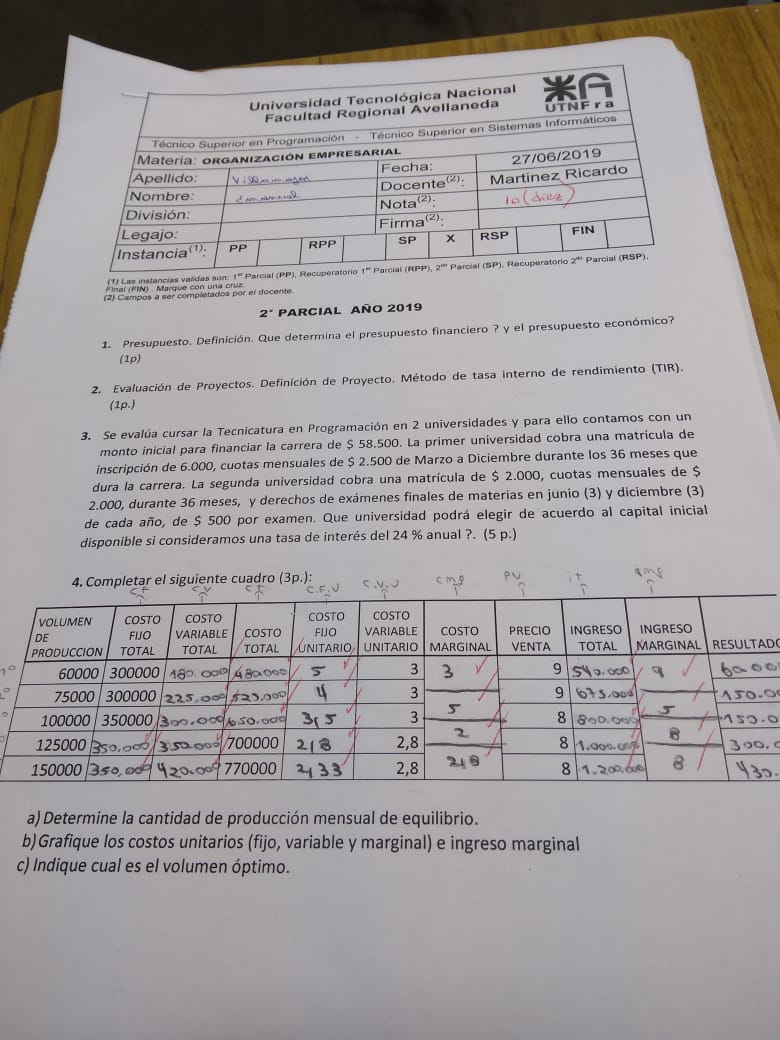 Universidad Tecnológica Nacional
Facultad Regional Avellaneda
UTNFra
Técnico Superior en Programación - Técnico Superior en Sistemas Informáticos
Materia: ORGANIZACIÓN EMPRESARIAL
Apellido: Fecha: 27/06/2019
Nombre: Docente(2): Martinez Ricardo
División: Nota(2): 10 (diez)
Legajo: Firma(2):
Instancia(1): PP RPP SP X RSP FIN
(1) Las instancias validas son: 1er Parcial (PP), Recuperatorio 1er Parcial (RPP), 2do Parcial (SP), Recuperatorio 2do Parcial (RSP),
Final (FIN) . Marque con una cruz.
(2) Campos a ser completados por el docente.
2° PARCIAL AÑO 2019
1. Presupuesto. Definición. Que determina el presupuesto financiero ? y el presupuesto económico?
(1p)
2. Evaluación de Proyectos. Definición de Proyecto. Método de tasa interno de rendimiento (TIR).
(1p.)
3. Se evalúa cursar la Tecnicatura en Programación en 2 universidades y para ello contamos con un
monto inicial para financiar la carrera de $ 58.500. La primer universidad cobra una matrícula de
inscripción de 6.000, cuotas mensuales de $ 2.500 de Marzo a Diciembre durante los 36 meses que
dura la carrera. La segunda universidad cobra una matrícula de $ 2.000, cuotas mensuales de $
2.000, durante 36 meses, y derechos de exámenes finales de materias en junio (3) y diciembre (3)
de cada año, de $ 500 por examen. Que universidad podrá elegir de acuerdo al capital inicial
disponible si consideramos una tasa de interés del 24 % anual ?. (5 p.)
4. Completar el siguiente cuadro (3p.):
CF CV CT C.F.U C.V.U cmg PV it
VOLUMEN DE PRODUCCION COSTO FIJO TOTAL COSTO VARIABLE TOTAL COSTO TOTAL COSTO FIJO UNITARIO COSTO VARIABLE UNITARIO COSTO MARGINAL PRECIO VENTA INGRESO TOTAL INGRESO MARGINAL RESULTADO
60000 300000 180.000 480.000 5 3 3 9 540.000 9 60.00
75000 300000 225.000 525.000 4 3 9 675.000 150.0
100000 350000 300.000 650.000 3,5 3 5 8 800.000 5 150.0
125000 350.000 350.000 700000 2,8 2,8 2 8 1.000.000 8 300.
150000 350.000 420.000 770000 2,33 2,8 2,8 8 1.200.000 8 430.
a) Determine la cantidad de producción mensual de equilibrio.
b) Grafique los costos unitarios (fijo, variable y marginal) e ingreso marginal
c) Indique cual es el volumen óptimo.